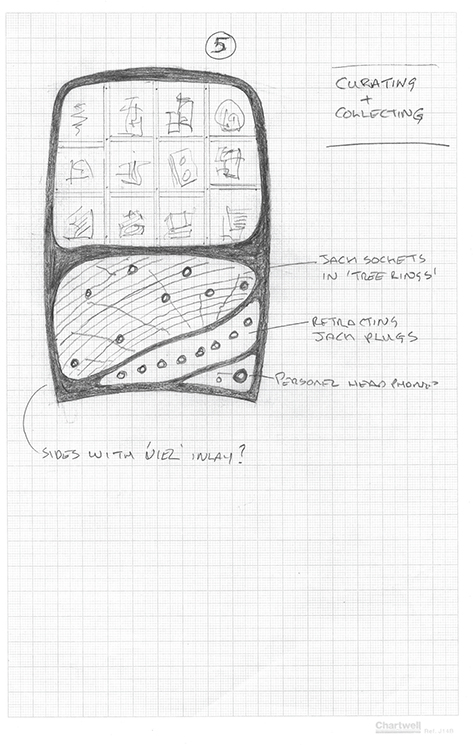 5
CURATING
+
COLLECTING
JACK SOCKETS
IN 'TREE RINGS'
RETRACTING
JACK PLUGS
PERSONEL HEADPHONES
SIDES WITH INLAY?
Chartwell